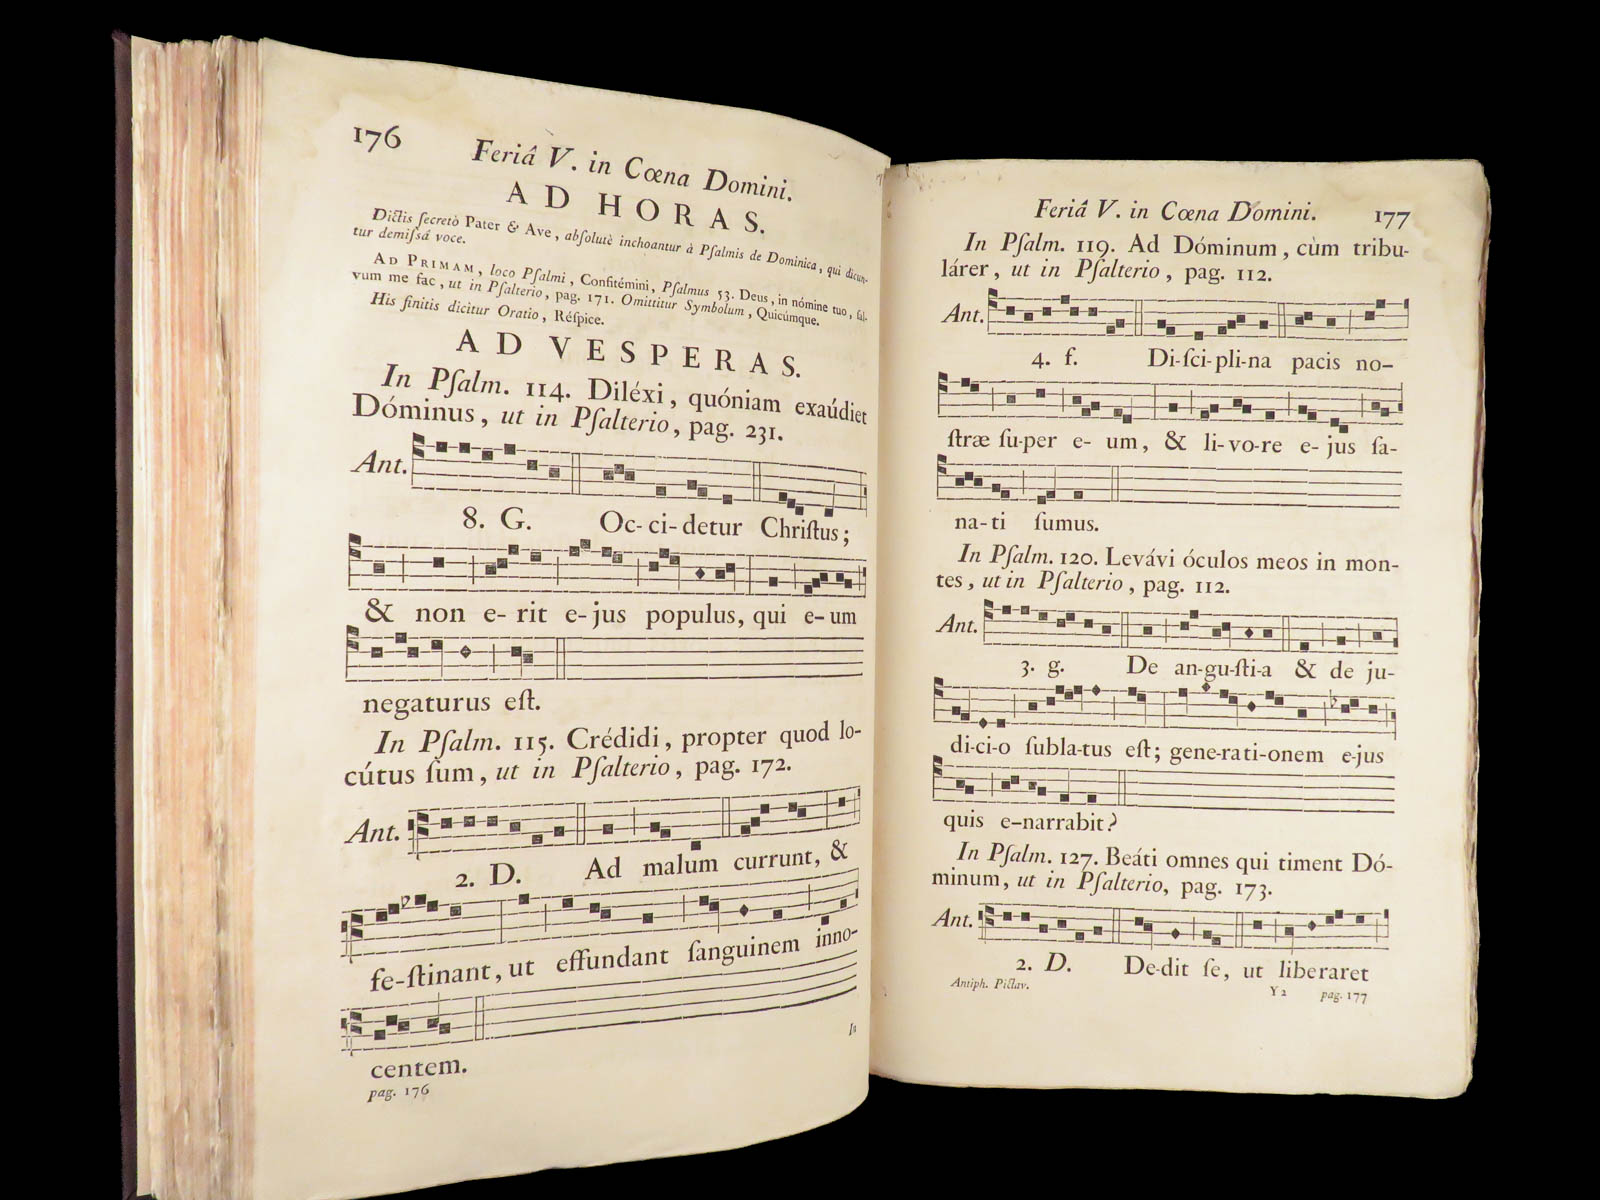 176
Feriâ V. in Cœna Domini.
AD HORAS.
Dictis ſecretò Pater & Ave, abſolutè inchoantur à Pſalmis de Dominica, qui dicun-
tur demiſsâ voce.
AD PRIMAM, loco Pſalmi, Confitémini, Pſalmus 53. Deus, in nómine tuo, ſal-
vum me fac, ut in Pſalterio, pag. 171. Omittitur Symbolum, Quicúmque.
His finitis dicitur Oratio, Réſpice.
AD VESPERAS.
In Pſalm. 114. Diléxi, quóniam exaúdiet
Dóminus, ut in Pſalterio, pag. 231.
Ant.
8. G. Oc-ci-detur Chriſtus;
& non e-rit e-jus populus, qui e-um
negaturus eſt.
In Pſalm. 115. Crédidi, propter quod lo-
cútus ſum, ut in Pſalterio, pag. 172.
Ant.
2. D. Ad malum currunt, &
fe-ſtinant, ut effundant ſanguinem inno-
centem.
pag. 176
In
Feriâ V. in Cœna Domini. 177
In Pſalm. 119. Ad Dóminum, cùm tribu-
lárer, ut in Pſalterio, pag. 112.
Ant.
4. f. Di-ſci-pli-na pacis no-
ſtræ ſu-per e-um, & li-vo-re e-jus ſa-
na-ti ſumus.
In Pſalm. 120. Levávi óculos meos in mon-
tes, ut in Pſalterio, pag. 112.
Ant.
3. g. De an-gu-ſti-a & de ju-
di-ci-o ſubla-tus eſt; gene-rati-onem e-jus
quis e-narrabit?
In Pſalm. 127. Beáti omnes qui timent Dó-
minum, ut in Pſalterio, pag. 173.
Ant.
2. D. De-dit ſe, ut liberaret
Antiph. Pictav. Y 2 pag. 177